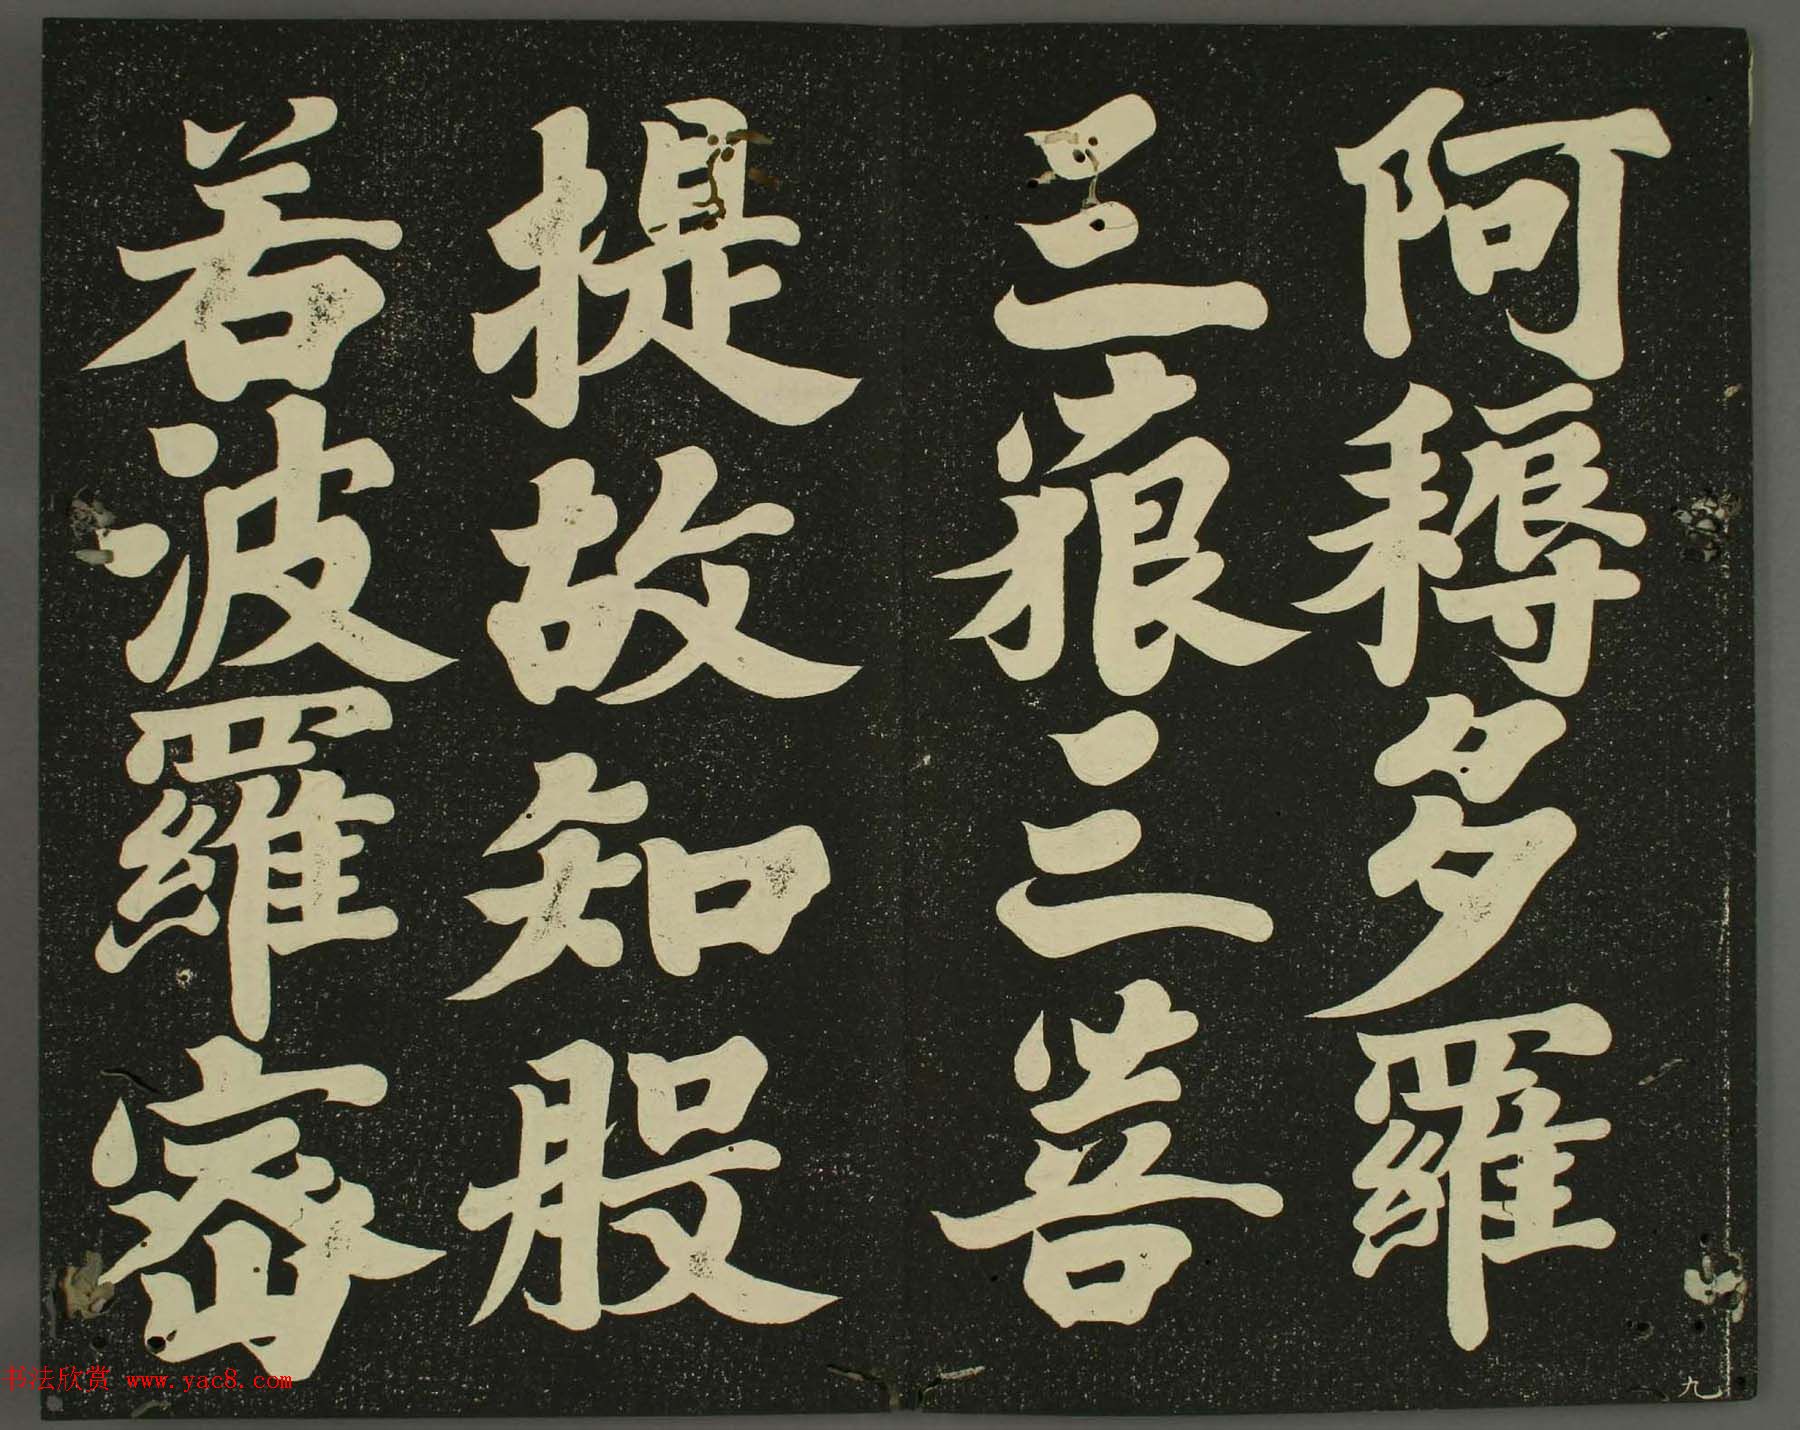 阿耨多羅
三藐三菩
提故知般
若波羅密
九
书法欣赏 www.yac8.com